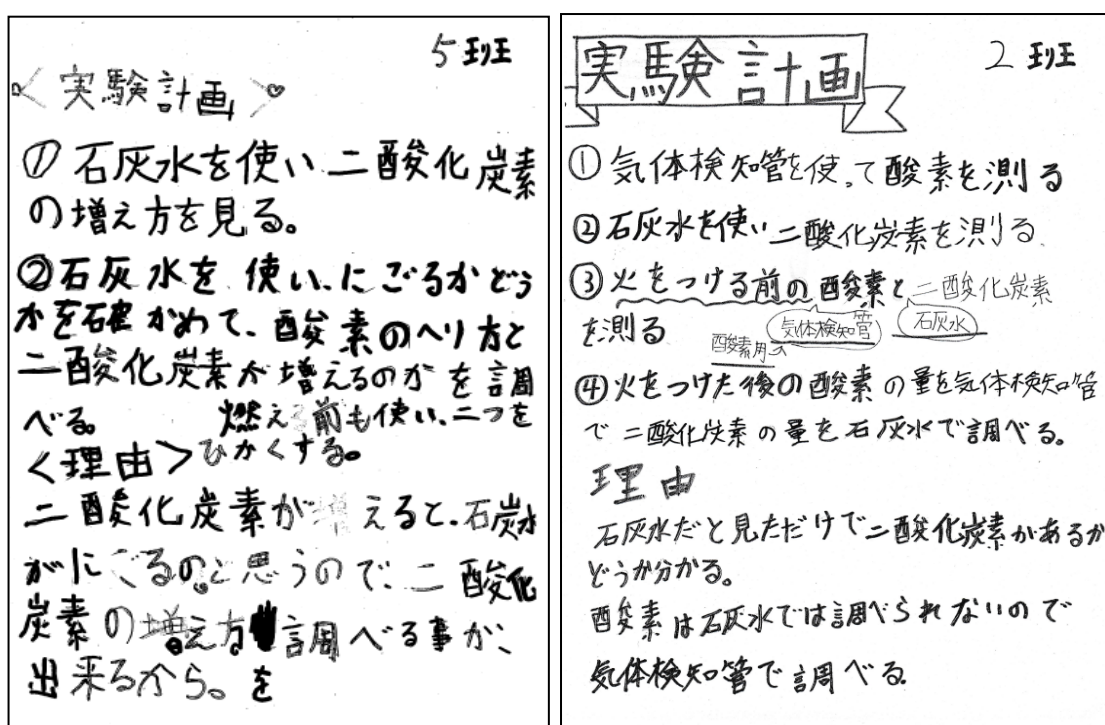 5班
<実験計画>
①石灰水を使い二酸化炭素
の増え方を見る。
②石灰水を使い、にごるかどう
かを確かめて、酸素のへり方と
二酸化炭素が増えるのかを調
べる。 燃える前も使い、二つを
ひかくする。
<理由>
二酸化炭素が増えると、石炭水
がにごるのと思うので、二酸化
炭素の増え方を調べる事が、
出来るから。
2班
実験計画
①気体検知管を使って酸素を測る
②石灰水を使い二酸化炭素を測る
③火をつける前の酸素と二酸化炭素
を測る 酸素用の 気体検知管 石灰水
④火をつけた後の酸素の量を気体検知管
で二酸化炭素の量を石灰水で調べる。
理由
石灰水だと見ただけで二酸化炭素があるか
どうか分かる。
酸素は石灰水では調べられないので
気体検知管で調べる。